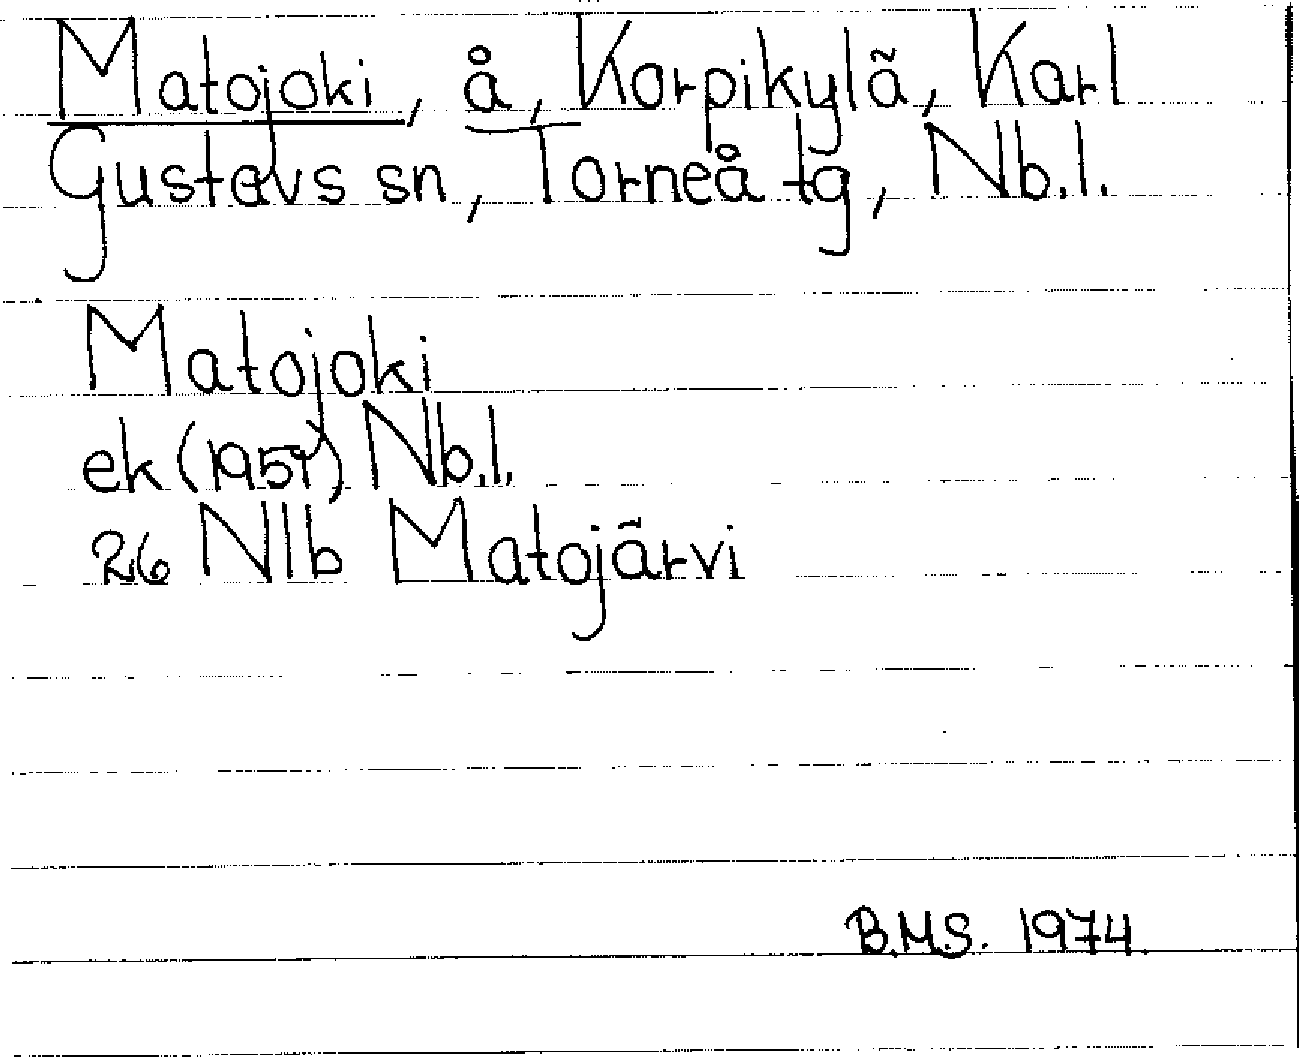 Matojoki, å, Korpikylä, Karl
Gustavs sn, Torneå tg, Nb.l.
Matojoki
ek (1957) Nb.l.
26 Nlb Matojärvi
B.M.S. 1974.